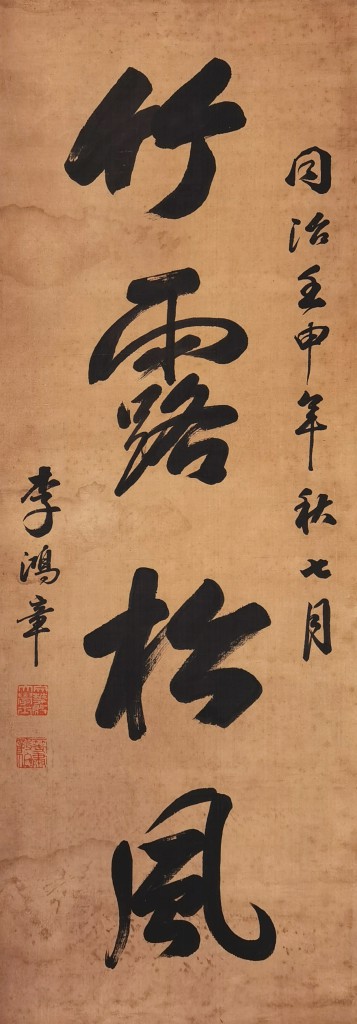 同治壬申年秋七月
竹露松風
李鴻章